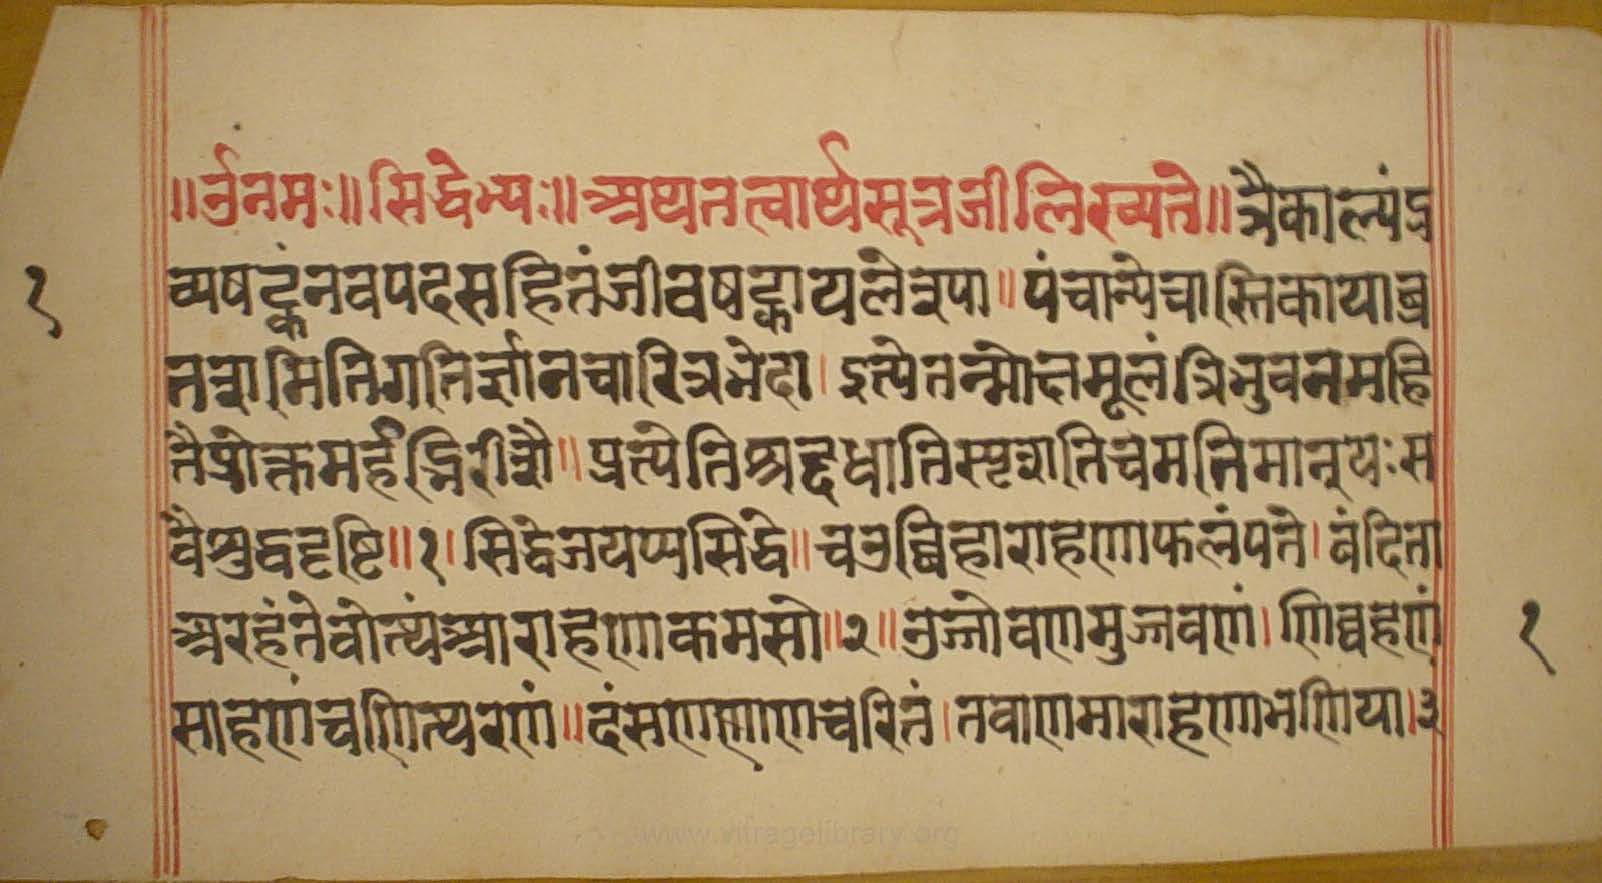 ॥र्उनमः॥सिद्धेभ्यः॥अथतत्वार्थसूत्रजीलिख्यते॥त्रैकाल्यंद्र
१
व्यषट्कंनवपदसहितंजीवषट्कायलेश्या॥पंचान्येचास्तिकायाव्र
तशमितिगतिर्ज्ञानचारित्रभेदा।इत्येतन्मोक्षमूलंत्रिभुवनमहि
तैप्रोक्तमर्हद्भिरीशै॥प्रत्येतिश्रद्दधातिस्पृशतिचमतिमान्यःस
वैशुद्धदृष्टि॥१।सिद्धेजयप्पसिद्धे॥चउव्विहाराहणाफलंपत्ते।वंदिता
अरहंतेवोत्थंआराहणाकमसो॥२॥उज्जोवणमुज्जवणं।णिव्वहणं
१
साहणंचणित्थरणं॥दंसणणाणचरित्तं।तवाणमाराहणाभणिया।३
www.vitragelibrary.org